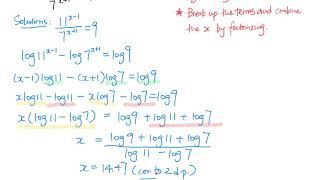 Solutions: 11^(x-1)/7^(x+1) = 9
* Break up the terms and combine
the x by factorizing.
log11^(x-1) - log7^(x+1) = log9
(x-1)log11 - (x+1)log7 = log9
xlog11 - log11 - xlog7 - log7 = log9
x(log11 - log7) = log9 + log11 + log7
x = (log9 + log11 + log7)/(log11 - log7)
x = 14.47 (corr to 2 d.p.)